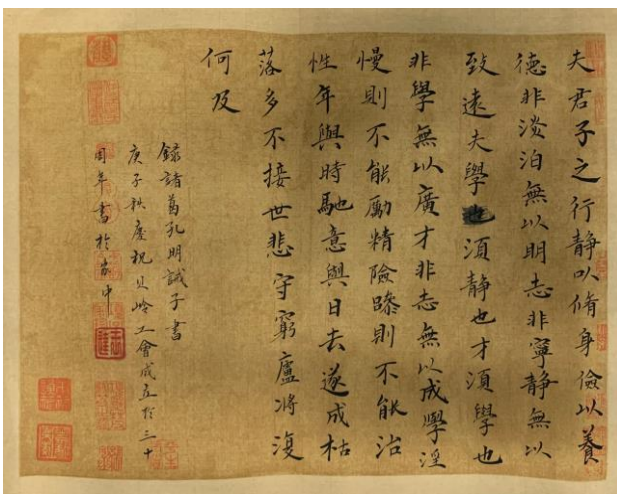 夫君子之行靜以脩身儉以養
德非淡泊無以明志非寧靜無以
致遠夫學也須静也才須學也
非學無以廣才非志無以成學淫
慢則不能勵精險躁則不能治
性年與時馳意與日去遂成枯
落多不接世悲守窮廬將復
何及
錄諸葛孔明誡子書
庚子秋慶祝貝岭工會成立於三十
周年書於家中